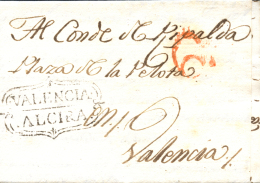 Al Conde de Ripalda
Plaza de la Pelota
VALENCIA
ALCIRA
en
Valencia